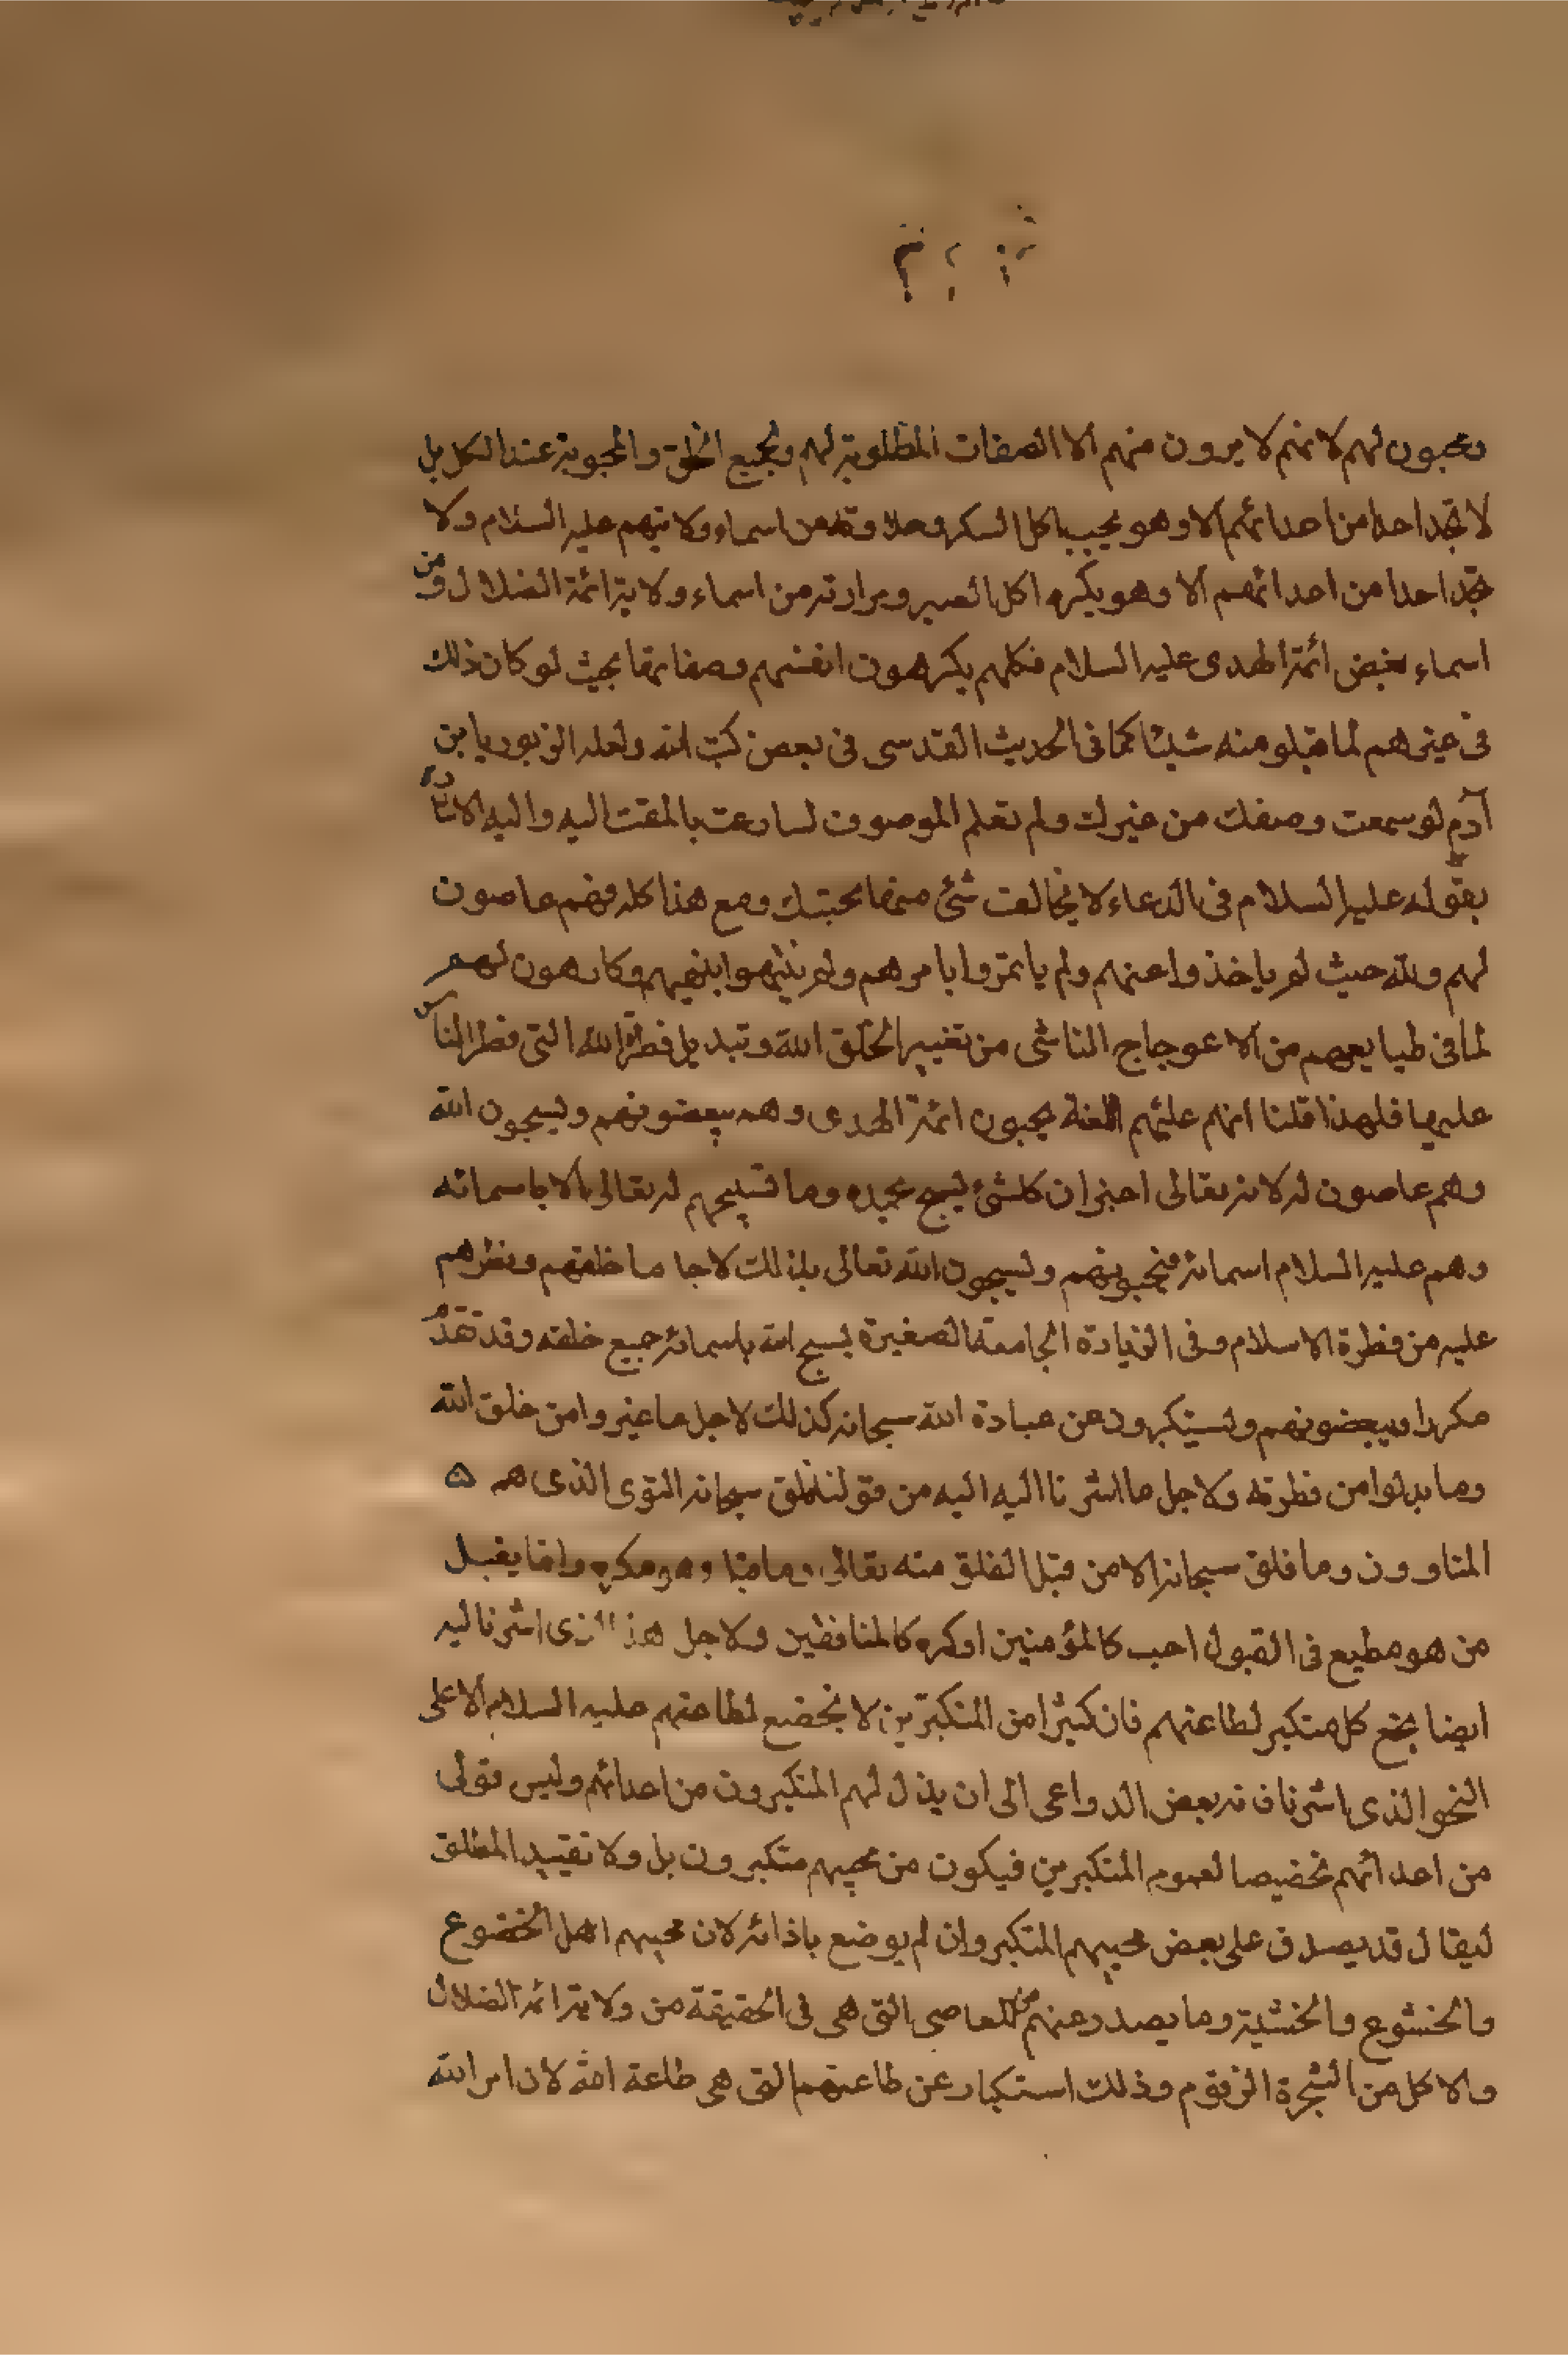 ومحبون لهم لانهم لا يرون منهم الا الصفات المطلوبة لهم ولجميع الخلق والمحبوبة عند الكل بل
لا تجد احدا من اعدائهم الا وهو يحب اكل السكر وحلاوته من اسماء ولايتهم عليه السلام ولا
تجد احدا من اعدائهم الا وهو يكره اكل الصبر ومرارته من اسماء ولاية ائمة الضلال ومن
اسماء بغض ائمة الهدى عليه السلام فكلهم يكرهون انفسهم وصفاتها بحيث لو كان ذلك
فى غيرهم لما قبلو منه شيئا كما فى الحديث القدسى فى بعض كتب الله ولعله الزبور يا بن
آدم لو سمعت وصفك من غيرك ولم تعلم الموصوف لسارعت بالمقت اليه واليه الاشارة
بقوله عليه السلام فى الدعاء لا يخالف شئ منها محبتك ومع هذا كله فهم عاصون
لهم ولله حيث لم ياخذوا عنهم ولم ياتمروا بامرهم ولم ينتهوا بنهيهم وكارهون لهم
لما فى طبايعهم من الاعوجاج الناشى من تغيير الخلق الله وتبديل فطرة الله التى فطر الناس
عليها فلهذا قلنا انهم عليهم اللعنة يحبون ائمة الهدى وهم يبغضونهم ويسبحون الله
وهم عاصون له لانه تعالى اخبر ان كلشئ يسبح بحمده وما تسبيحهم له تعالى الا باسمائه
وهم عليه السلام اسمائه فيحبونهم ويسبحون الله تعالى بذلك لاجل ما خلقهم وفطرهم
عليه من فطرة الاسلام وفى الزيارة الجامعة الصغيرة يسبح الله باسمائه جميع خلقه وقد تقدم
مكررا ويبغضونهم ويستكبرون عن عبادة الله سبحانه كذلك لاجل ما غيروا من خلق الله
وما بدلوا من فطرته ولاجل ما اشرنا اليه اليه من قولنا خلق سبحانه النوى الذى هم
المناوون وما فلق سبحانه الا من قبل الفلق منه تعالى وما قبل وهو مكره وانما يقبل
من هو مطيع فى القبول احب كالمؤمنين او كره كالمنافقين ولاجل هذا الذى اشرنا اليه
ايضا بخع كل متكبر لطاعتهم فان كثيرا من المتكبرين لا يخضع لطاعتهم عليه السلام الا على
النحو الذى اشرنا فى بعض الدواعى الى ان يذل لهم المتكبرون من اعدائهم وليس قولى
من اعدائهم تخصيصا لعموم المتكبرين فيكون من محبيهم متكبرون بل ولا تقييد المطلق
ليقال قد يصدق على بعض محبيهم المتكبر وان لم يوضع باذائه لان محبيهم اهل الخضوع
والخشوع والخشية وما يصدر عنهم من المعاصى التى هى فى الحقيقة من ولاية ائمة الضلال
والاكل من الشجرة الزقوم وذلك استكبار عن طاعتهم التى هى طاعة الله لان امر الله